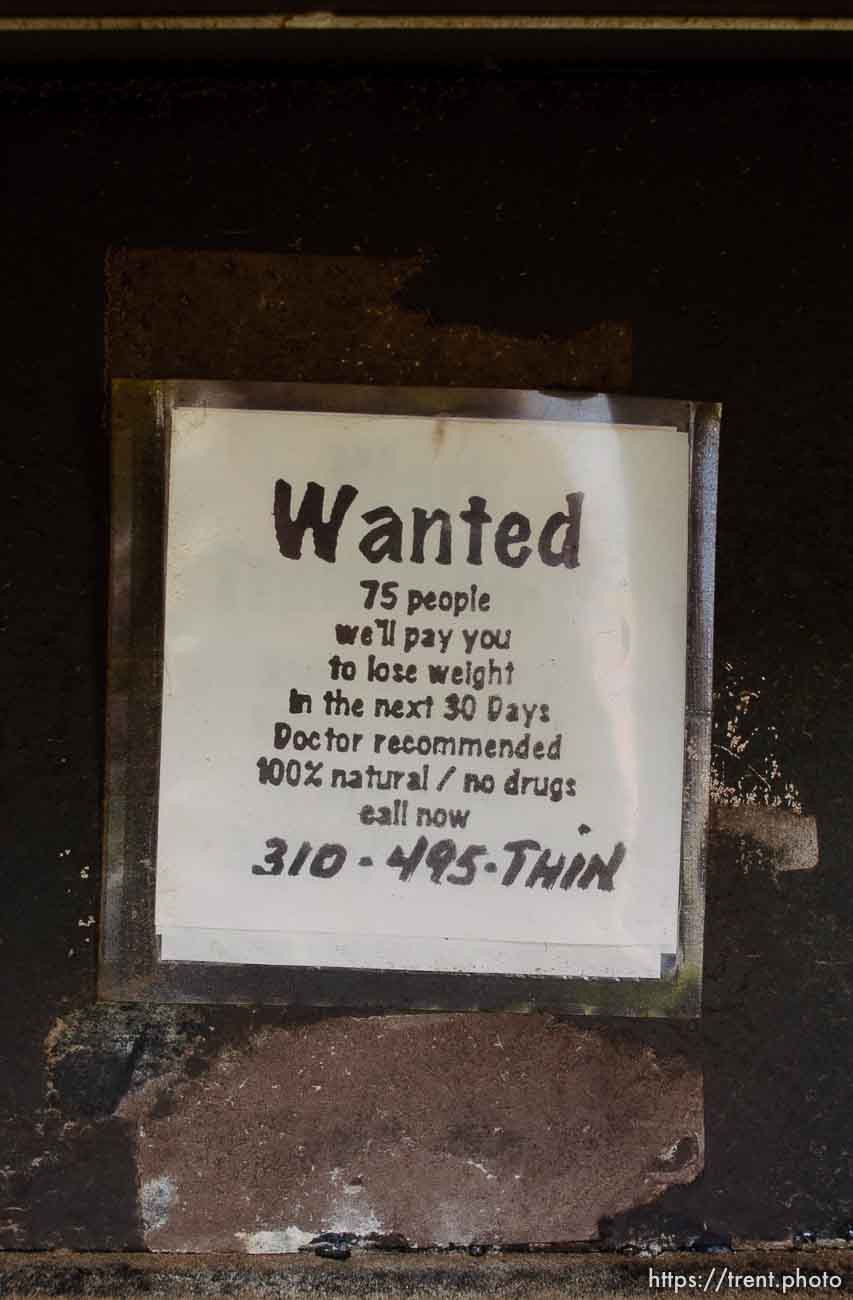 Wanted
75 people
we'll pay you
to lose weight
In the next 30 Days
Doctor recommended
100% natural / no drugs
call now
310-495-THIN
https://trent.photo